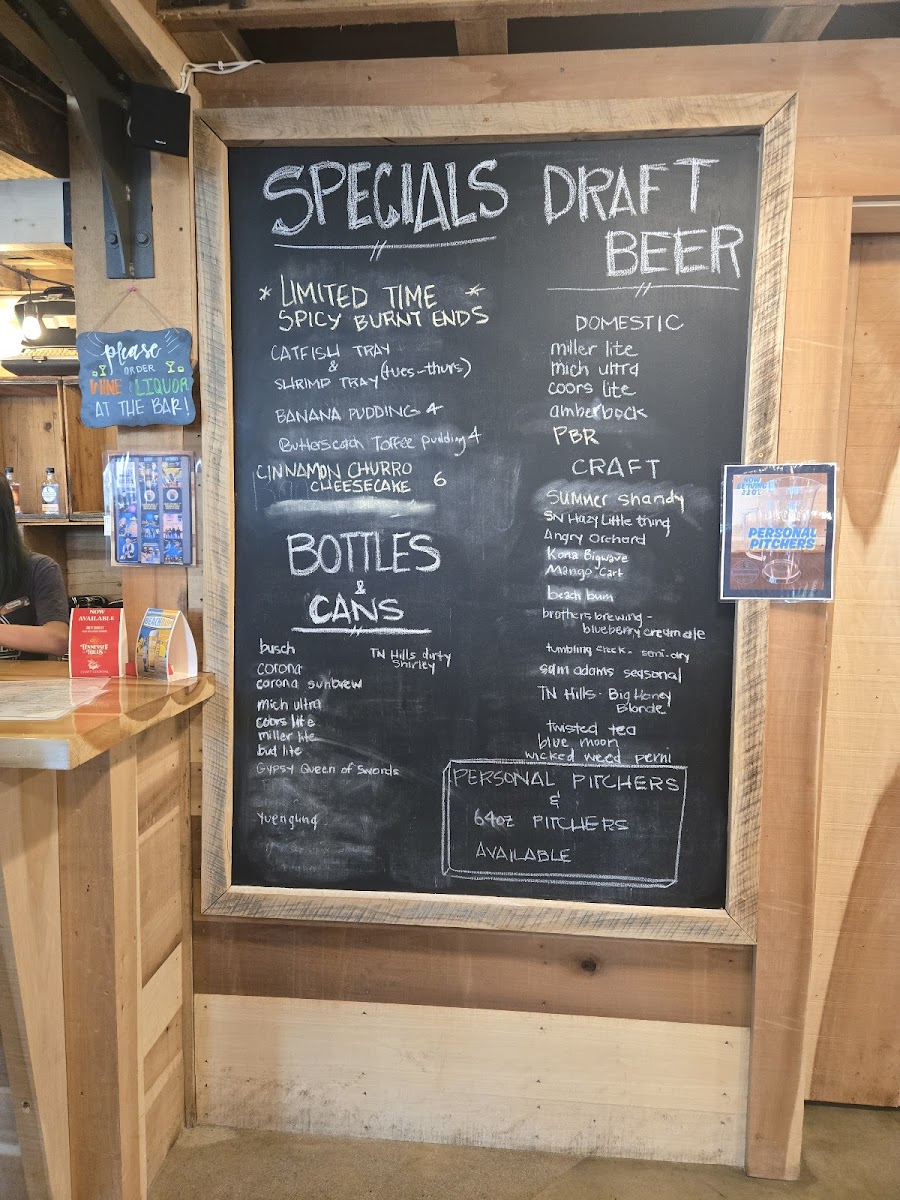 SPECIALS
* LIMITED TIME *
SPICY BURNT ENDS
CATFISH TRAY
&
SHRIMP TRAY (tues-thurs)
BANANA PUDDING 4
Butterscotch Toffee pudding 4
CINNAMON CHURRO
CHEESECAKE 6
BOTTLES
&
CANS
busch
corona
corona sunbrew
mich ultra
coors lite
miller lite
bud lite
Gypsy Queen of Swords
Yuengling
TN Hills dirty
Shirley
DRAFT
BEER
DOMESTIC
miller lite
mich ultra
coors lite
amberbock
PBR
CRAFT
Summer shandy
SN Hazy Little thing
Angry Orchard
Kona Bigwave
Mango Cart
beach bum
brothers brewing -
blueberry cream ale
tumbling creek - semi-dry
sam adams seasonal
TN Hills - Big Honey
Blonde
twisted tea
blue moon
wicked weed perni
PERSONAL PITCHERS
&
64oz PITCHERS
AVAILABLE
please
ORDER
WINE & LIQUOR
AT THE BAR!
NOW
AVAILABLE
TENNESSEE
HILLS
PERSONAL
PITCHERS